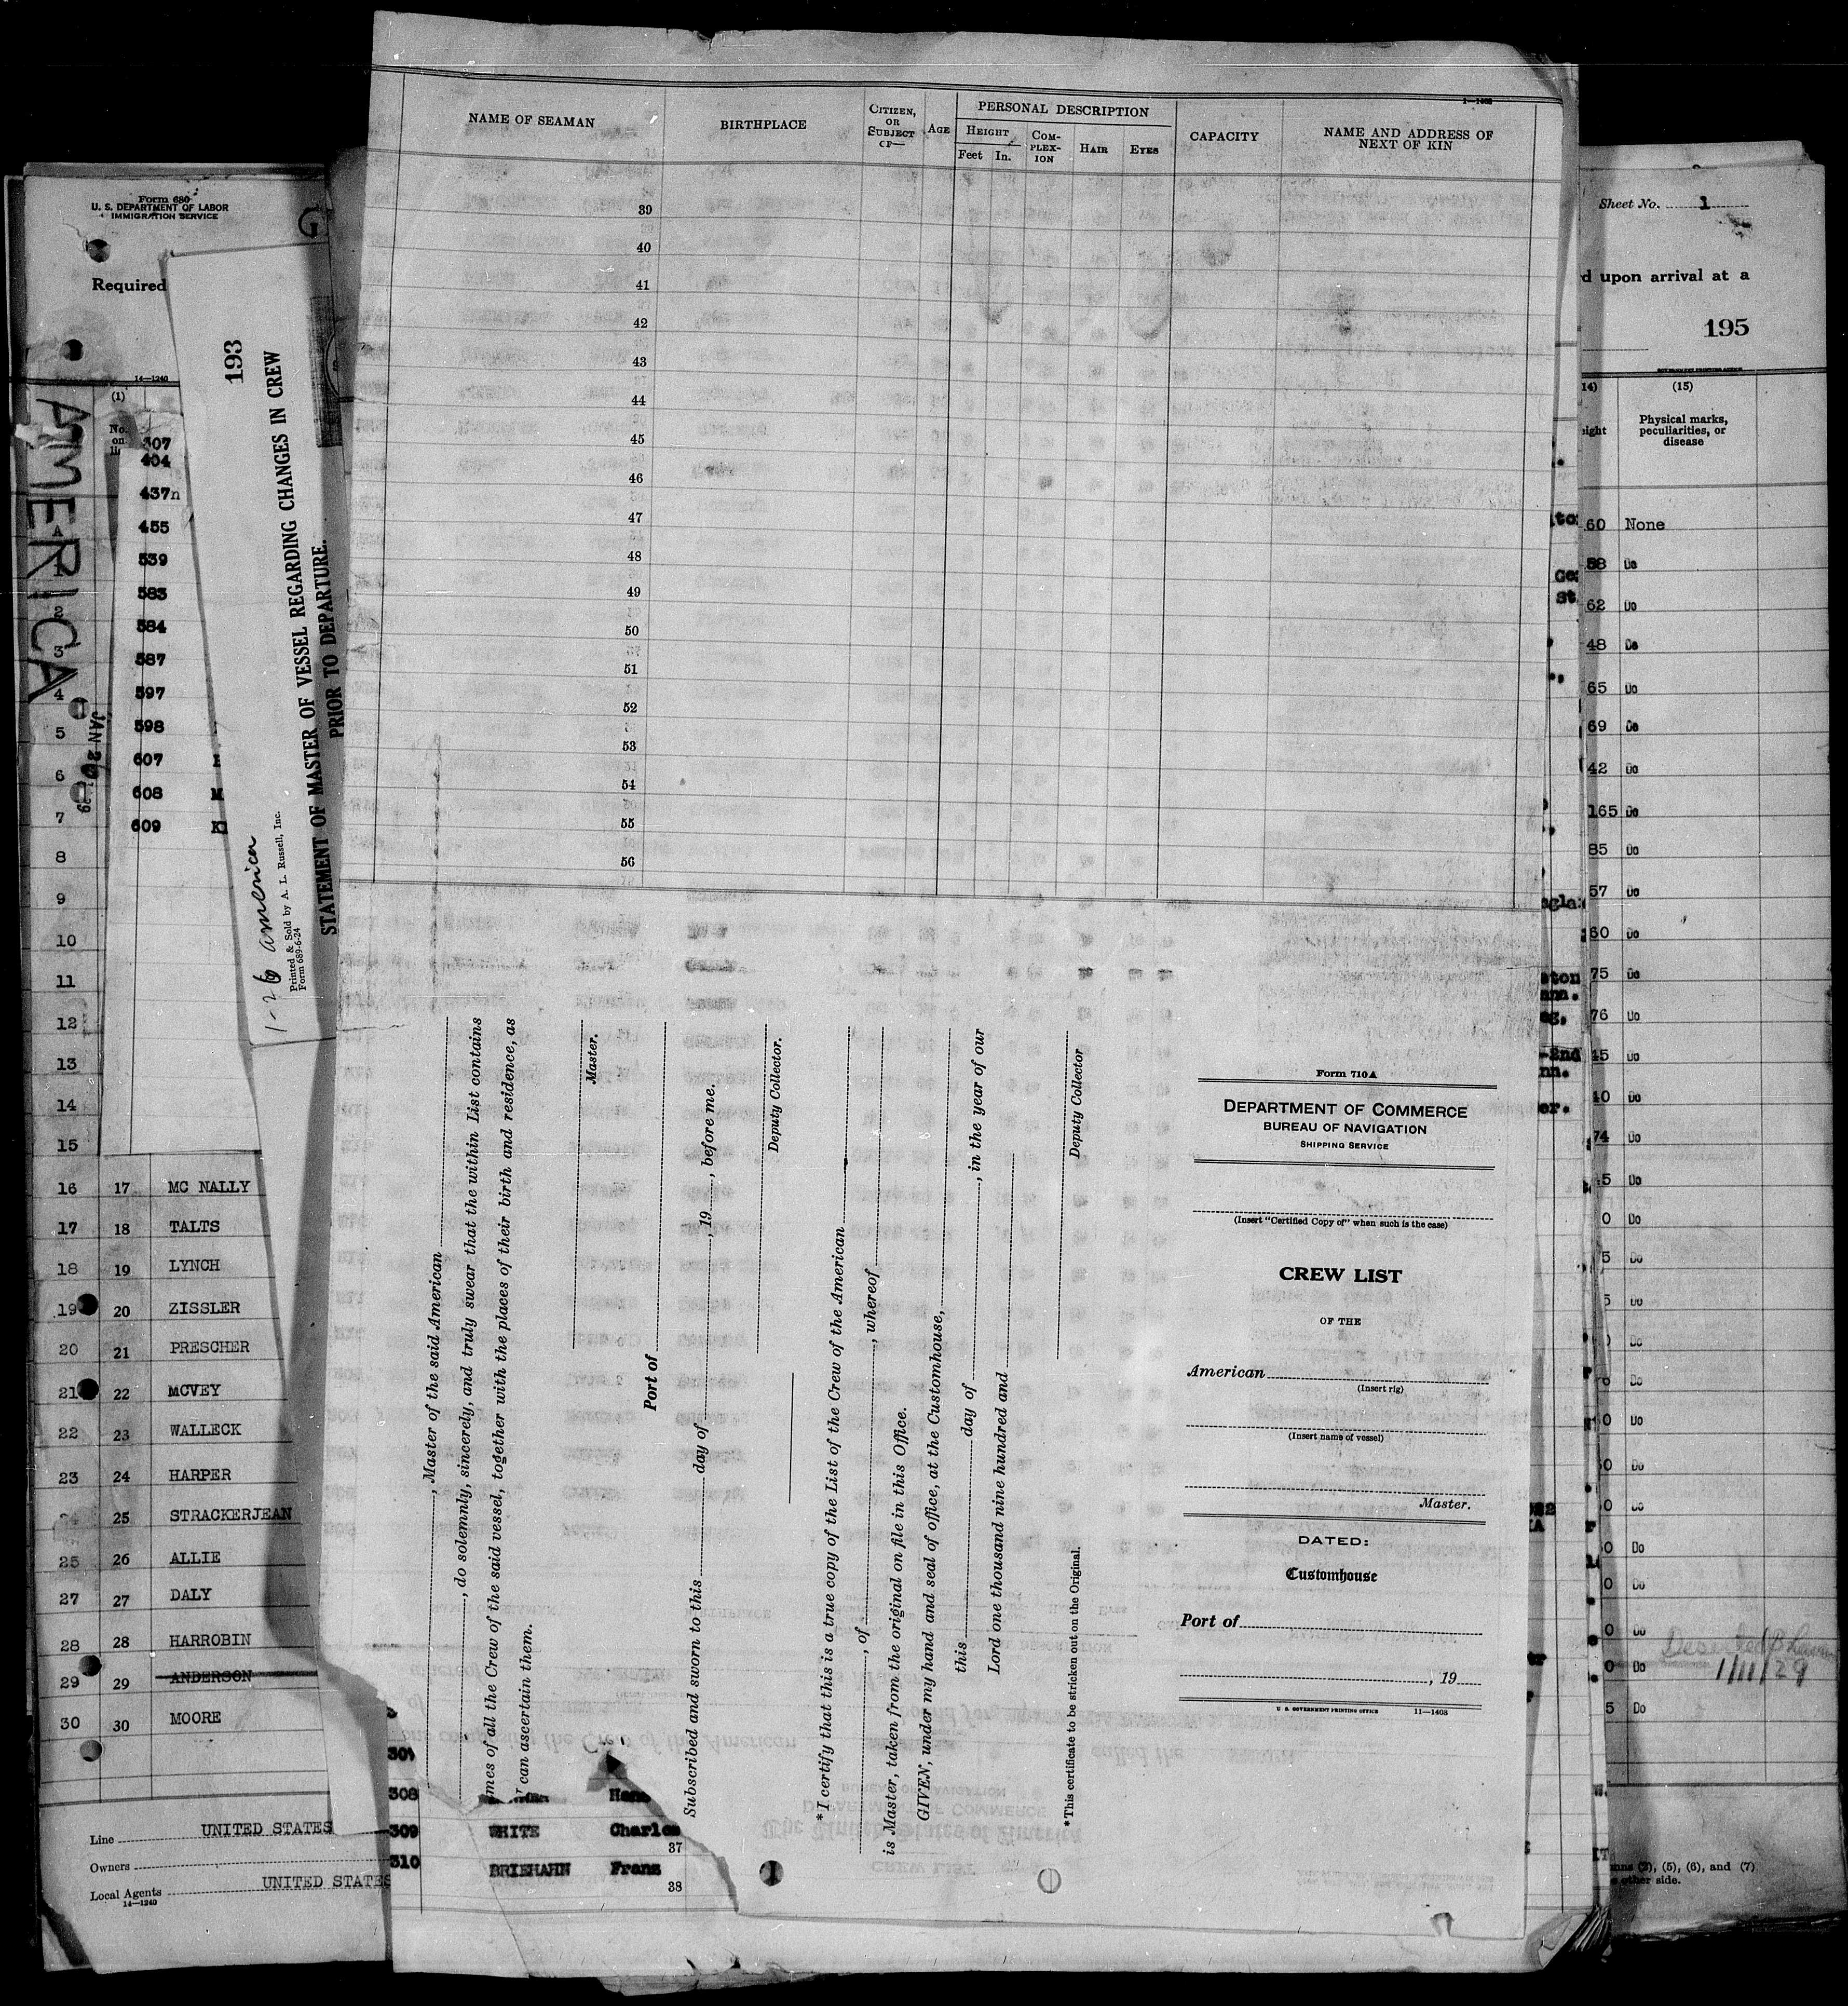 Form 680
U. S. DEPARTMENT OF LABOR
IMMIGRATION SERVICE
G
Required
14—1240
(1)
No.
on
AMERICA
JAN 26
307
404
437n
455
539
583
584
587
597
598
607
608 M
609 K
A
1
2
3
4
5
6
7
8
9
10
11
12
13
14
15
16 17 MC NALLY
17 18 TALTS
18 19 LYNCH
19 20 ZISSLER
20 21 PRESCHER
21 22 MCVEY
22 23 WALLECK
23 24 HARPER
24 25 STRACKERJEAN
25 26 ALLIE
27 27 DALY
28 28 HARROBIN
29 29 ANDERSON
30 30 MOORE
Line UNITED STATES
Owners
Local Agents UNITED STATES
14—1240
193
STATEMENT OF MASTER OF VESSEL REGARDING CHANGES IN CREW
PRIOR TO DEPARTURE.
1-26 america
Printed & Sold by A. L. Russell, Inc.
Form 689-6-24
1—1408
NAME OF SEAMAN
BIRTHPLACE
CITIZEN,
OR
SUBJECT
OF—
AGE
PERSONAL DESCRIPTION
HEIGHT
Feet In.
COM-
PLEX-
ION
HAIR
EYES
CAPACITY
NAME AND ADDRESS OF
NEXT OF KIN
39
40
41
42
43
44
45
46
47
48
49
50
51
52
53
54
55
56
, Master of the said American
, do solemnly, sincerely, and truly swear that the within List contains
mes of all the Crew of the said vessel, together with the places of their birth and residence, as
can ascertain them.
Master.
Port of
Subscribed and sworn to this day of , 19 , before me.
Deputy Collector.
*I certify that this is a true copy of the List of the Crew of the American
, of , whereof
is Master, taken from the original on file in this Office.
GIVEN, under my hand and seal of office, at the Customhouse,
this day of , in the year of our
Lord one thousand nine hundred and
Deputy Collector
*This certificate to be stricken out on the Original.
Form 710A
DEPARTMENT OF COMMERCE
BUREAU OF NAVIGATION
SHIPPING SERVICE
(Insert "Certified Copy of" when such is the case)
CREW LIST
OF THE
American
(Insert rig)
(Insert name of vessel)
Master.
DATED:
Customhouse
Port of
, 19
U. S. GOVERNMENT PRINTING OFFICE 11—1408
308
309 WHITE Charles
37
310 BRIEHAHN Franz
38
Sheet No. 1
d upon arrival at a
195
GOVERNMENT PRINTING OFFICE
14)
eight
(15)
Physical marks,
peculiarities, or
disease
60 None
58 Do
62 Do
48 Do
65 Do
69 Do
42 Do
165 Do
85 Do
57 Do
60 Do
75 Do
76 Do
45 Do
40 Do
74 Do
5 Do
0 Do
5 Do
5 Do
Do
Do
0 Do
0 Do
0 Do
0 Do
0 Do
0 Do
0 Do
5 Do
Deserted
1/11/29
(5), (6), and (7)
other side.